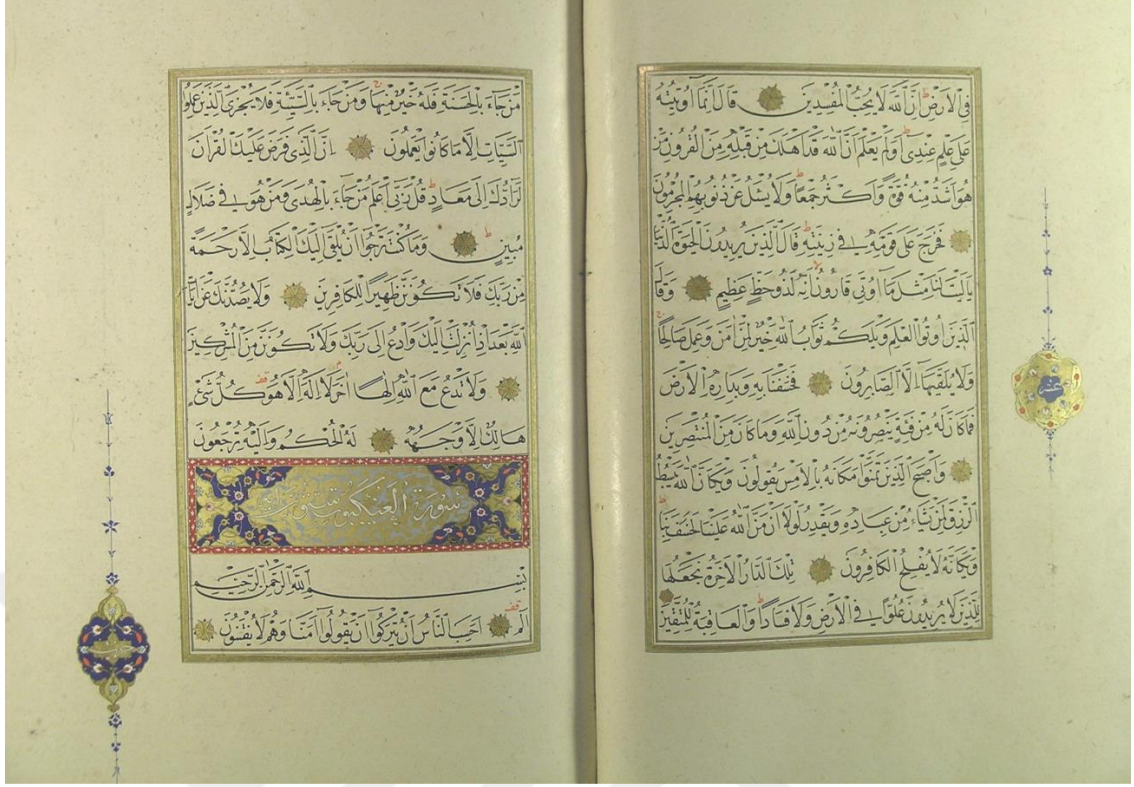 فِي الْاَرْضِ اِنَّ اللّٰهَ لَا يُحِبُّ الْمُفْسِدِينَ قَالَ اِنَّمَا اُو۫تِيتُهُ
عَلٰى عِلْمٍ عِنْدِي اَوَلَمْ يَعْلَمْ اَنَّ اللّٰهَ قَدْ اَهْلَكَ مِنْ قَبْلِهِ مِنَ الْقُرُونِ مَنْ
هُوَ اَشَدُّ مِنْهُ قُوَّةً وَاَكْثَرُ جَمْعًا وَلَا يُسْئَلُ عَنْ ذُنُوبِهِمُ الْمُجْرِمُونَ
فَخَرَجَ عَلٰى قَوْمِهِ فِي زِينَتِهِ قَالَ الَّذِينَ يُرِيدُونَ الْحَيٰوةَ الدُّنْيَا
يَا لَيْتَ لَنَا مِثْلَ مَا اُوتِيَ قَارُونُ اِنَّهُ لَذُو حَظٍّ عَظِيمٍ وَقَالَ
الَّذِينَ اُوتُوا الْعِلْمَ وَيْلَكُمْ ثَوَابُ اللّٰهِ خَيْرٌ لِمَنْ اٰمَنَ وَعَمِلَ صَالِحًا
وَلَا يُلَقّٰيهَا اِلَّا الصَّابِرُونَ فَخَسَفْنَا بِهِ وَبِدَارِهِ الْاَرْضَ
فَمَا كَانَ لَهُ مِنْ فِئَةٍ يَنْصُرُونَهُ مِنْ دُونِ اللّٰهِ وَمَا كَانَ مِنَ الْمُنْتَصِرِينَ
وَاَصْبَحَ الَّذِينَ تَمَنَّوْا مَكَانَهُ بِالْاَمْسِ يَقُولُونَ وَيْكَاَنَّ اللّٰهَ يَبْسُطُ
الرِّزْقَ لِمَنْ يَشَاءُ مِنْ عِبَادِهِ وَيَقْدِرُ لَوْلَا اَنْ مَنَّ اللّٰهُ عَلَيْنَا لَخَسَفَ بِنَا
وَيْكَاَنَّهُ لَا يُفْلِحُ الْكَافِرُونَ تِلْكَ الدَّارُ الْاٰخِرَةُ نَجْعَلُهَا
لِلَّذِينَ لَا يُرِيدُونَ عُلُوًّا فِي الْاَرْضِ وَلَا فَسَادًا وَالْعَاقِبَةُ لِلْمُتَّقِينَ
عشر
مَنْ جَاءَ بِالْحَسَنَةِ فَلَهُ خَيْرٌ مِنْهَا وَمَنْ جَاءَ بِالسَّيِّئَةِ فَلَا يُجْزَى الَّذِينَ عَمِلُوا
السَّيِّاٰتِ اِلَّا مَا كَانُوا يَعْمَلُونَ اِنَّ الَّذِي فَرَضَ عَلَيْكَ الْقُرْاٰنَ
لَرَادُّكَ اِلٰى مَعَادٍ قُلْ رَبِّي اَعْلَمُ مَنْ جَاءَ بِالْهُدٰى وَمَنْ هُوَ فِي ضَلَالٍ
مُبِينٍ وَمَا كُنْتَ تَرْجُوا اَنْ يُلْقٰى اِلَيْكَ الْكِتَابُ اِلَّا رَحْمَةً
مِنْ رَبِّكَ فَلَا تَكُونَنَّ ظَهِيرًا لِلْكَافِرِينَ وَلَا يَصُدُّنَّكَ عَنْ اٰيَاتِ
اللّٰهِ بَعْدَ اِذْ اُنْزِلَتْ اِلَيْكَ وَادْعُ اِلٰى رَبِّكَ وَلَا تَكُونَنَّ مِنَ الْمُشْرِكِينَ
وَلَا تَدْعُ مَعَ اللّٰهِ اِلٰهًا اٰخَرَ لَا اِلٰهَ اِلَّا هُوَ كُلُّ شَيْءٍ
هَالِكٌ اِلَّا وَجْهَهُ لَهُ الْحُكْمُ وَاِلَيْهِ تُرْجَعُونَ
سورة العنكبوت
بِسْمِ اللّٰهِ الرَّحْمٰنِ الرَّحِيمِ
الم اَحَسِبَ النَّاسُ اَنْ يُتْرَكُوا اَنْ يَقُولُوا اٰمَنَّا وَهُمْ لَا يُفْتَنُونَ